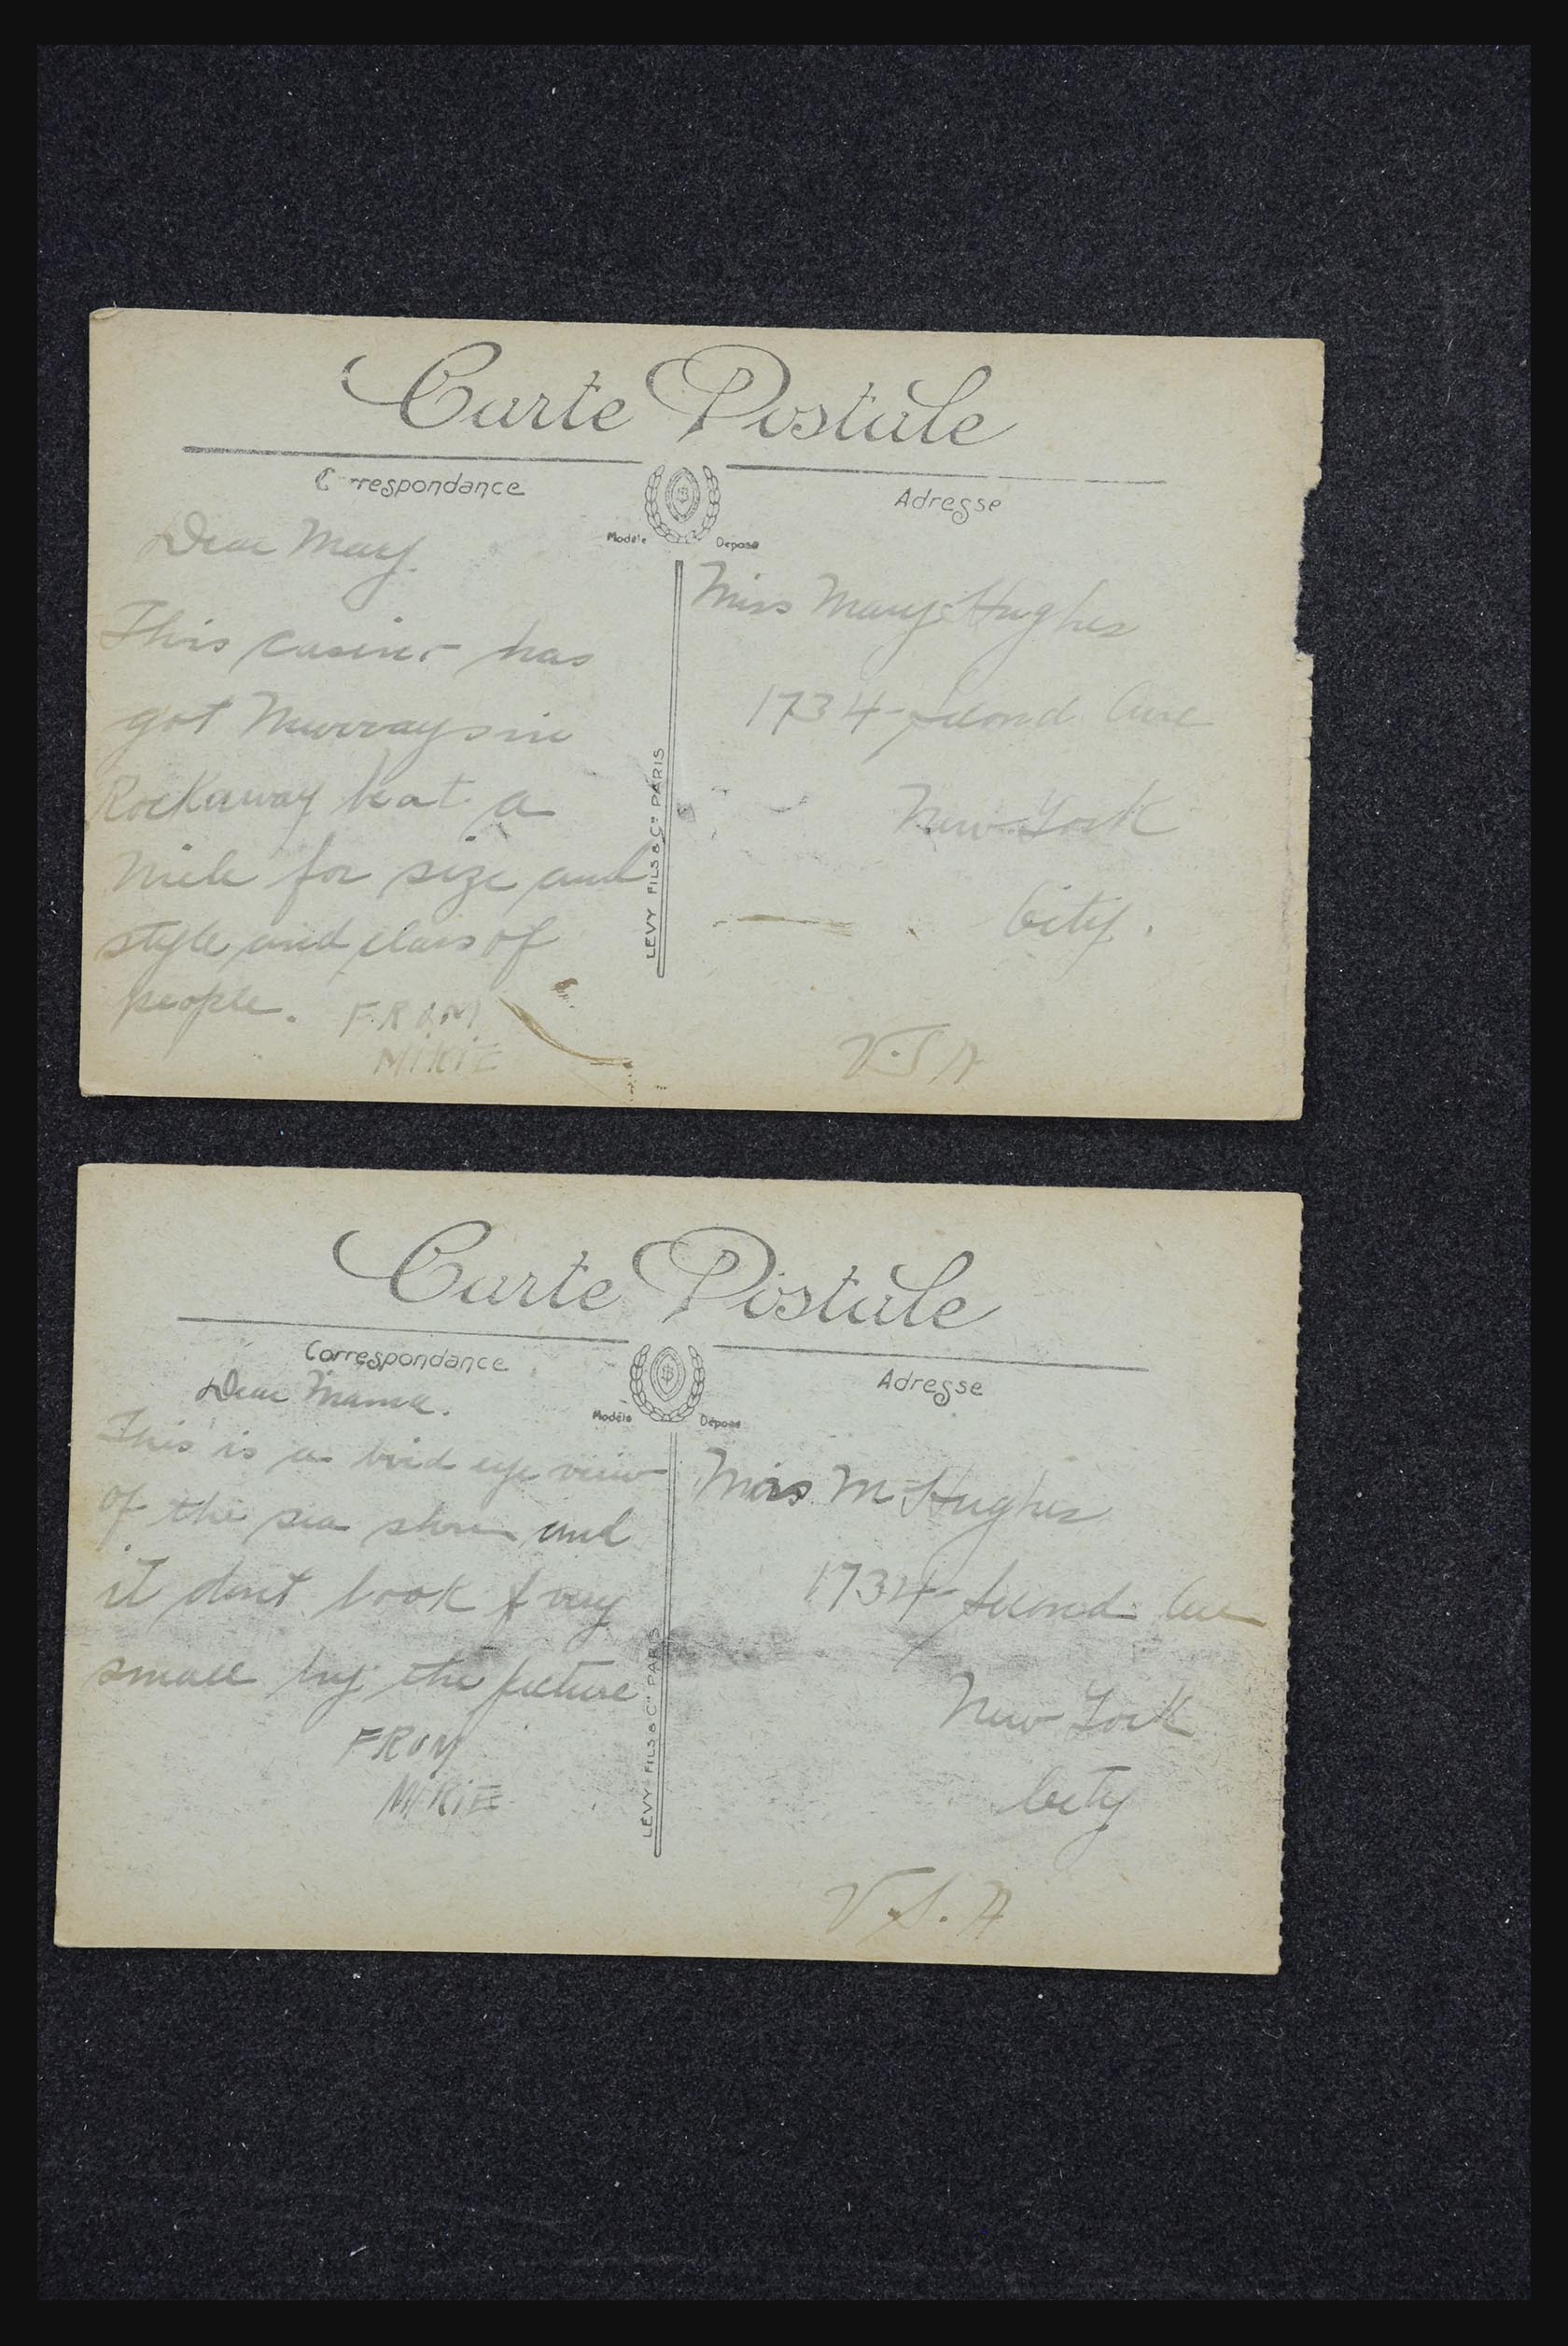 Carte Postale
Correspondance
Adresse
Modèle Déposé
Dear Mary
This casino has
got Murrays in
Rockaway beat a
mile for size and
style and class of
people. FROM
MIKIE
LEVY FILS & Cie PARIS
Miss Mary Hughes
1734 Second Ave
New York
City.
U.S A
Carte Postale
Correspondance
Adresse
Modèle Déposé
Dear Mama.
This is a bird eye view
of the sea shore and
it dont look very
small by the picture
FROM
MIKIE
LEVY FILS & Cie PARIS
Mrs M Hughes
1734 Second Ave
New York
City
U.S.A